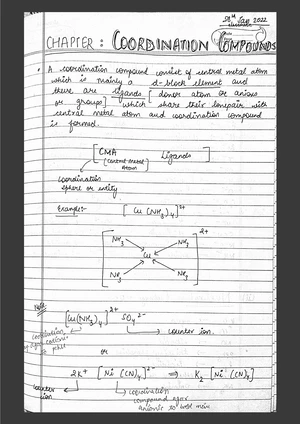 28th Jan 2022
CHAPTER: COORDINATION COMPOUNDS
A coordination compound consist of central metal atom
which is mainly a d-block element and
there are ligands [donor atom or anions
or groups] which share their lonepair with
central metal atom and coordination compound
is formed.
[CMA Ligands]
(central metal
atom)
coordination
sphere or entity
Example:- [Cu(NH3)4]2+
2+
NH3 NH3
Cu
NH3 NH3
Note
[Cu(NH3)4]2+ SO4 2-
coordination counter ion.
or
2K+ [Ni(CN)4]2- ⇒ K2[Ni(CN)4]
counter coordination
ion compound